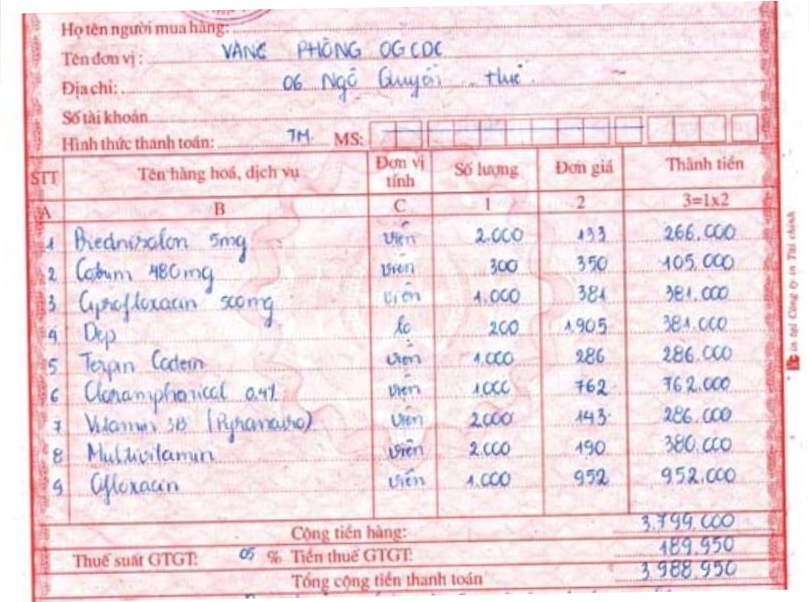 Họ tên người mua hàng:
Tên đơn vị: VĂNG PHÒNG OGCDC
Địa chỉ: 06 Ngô Quyền Huế
Số tài khoản
Hình thức thanh toán: TM MS:
STT Tên hàng hoá, dịch vụ Đơn vị tính Số lượng Đơn giá Thành tiền
A B C 1 2 3=1x2
1 5mg viên 2.000 133 266.000
2 480mg viên 300 350 105.000
3 Ciprofloxacin 500mg viên 1.000 381 381.000
4 Dep lo 200 1.905 381.000
5 Terpin Codein viên 1.000 286 286.000
6 0,4% viên 1000 762 762.000
7 Vitamin 3B viên 2000 143 286.000
8 Multivitamin viên 2.000 190 380.000
9 Ofloxacin viên 1.000 952 952.000
Cộng tiền hàng: 3.799.000
Thuế suất GTGT: 05 % Tiền thuế GTGT: 189.950
Tổng cộng tiền thanh toán 3.988.950
in tại Công ty in Tài chính